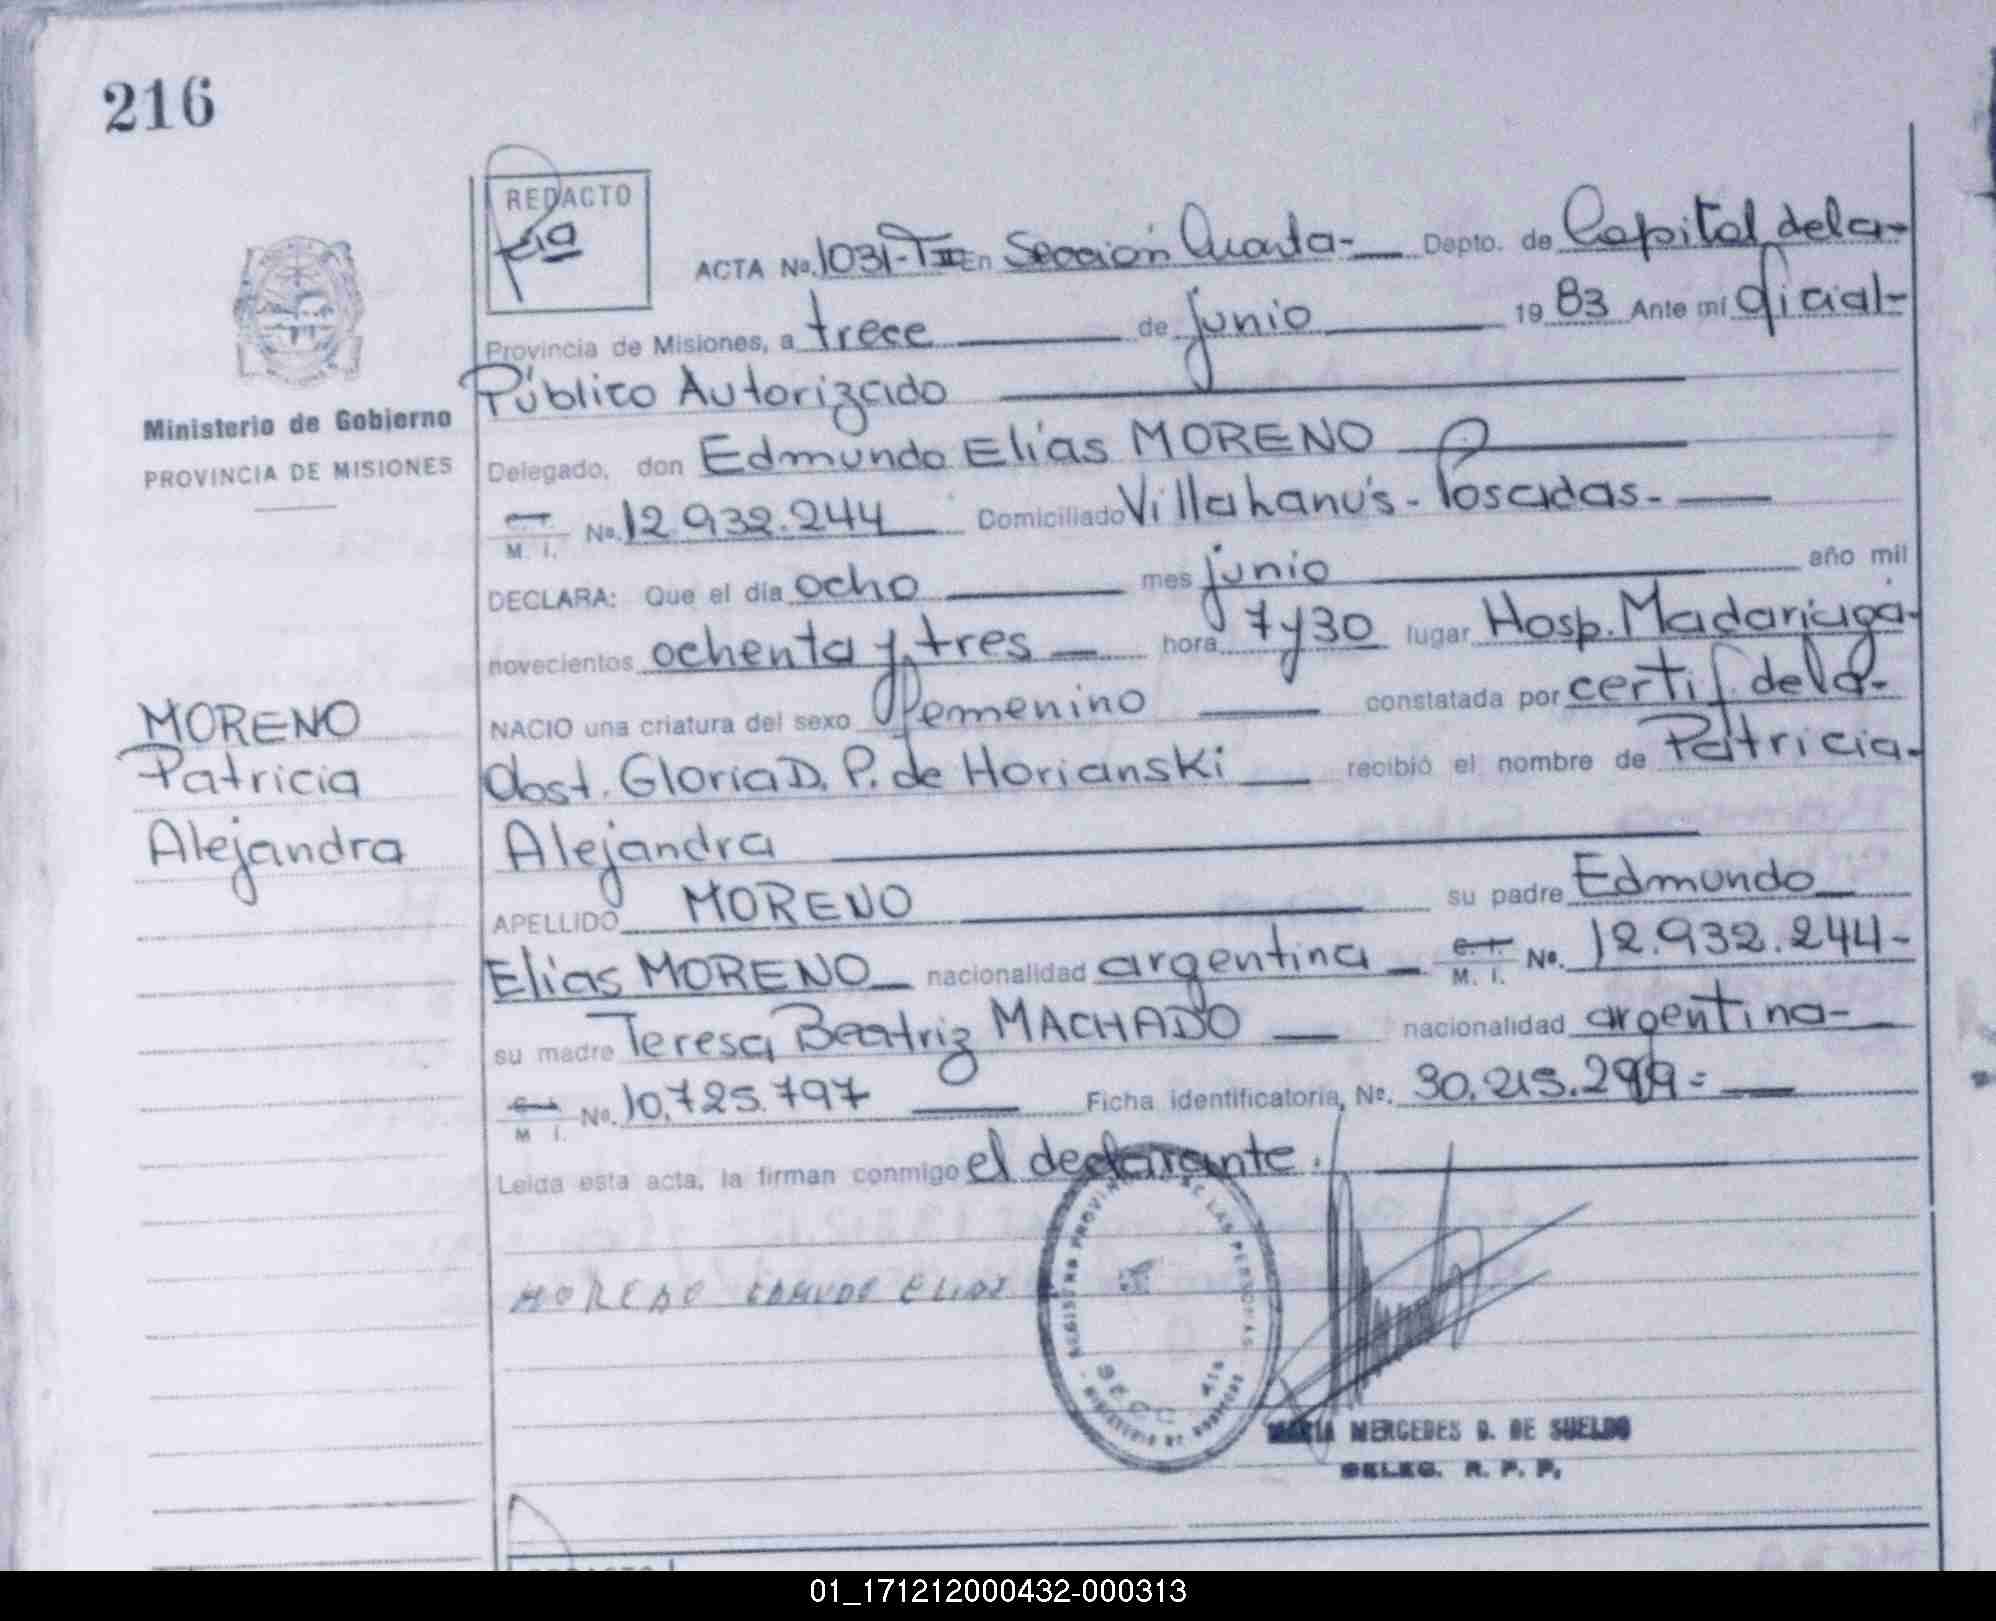 216
REDACTO
ACTA No. 1031-TIII En Sección Cuarta- Depto. de Capital de la-
Provincia de Misiones, a trece de junio 1983 Ante mí Oficial-
Público Autorizado
Ministerio de Gobierno
PROVINCIA DE MISIONES
Delegado, don Edmundo Elías MORENO
C. I. M. I. No. 12.932.244 Domiciliado Villa Lanús - Posadas.-
DECLARA: Que el día ocho mes junio año mil
novecientos ochenta y tres hora 7 y 30 lugar Hosp. Madariaga-
NACIO una criatura del sexo femenino constatada por certif. de la-
Obst. Gloria D. P. de Horianski recibió el nombre de Patricia-
Alejandra
MORENO
Patricia
Alejandra
APELLIDO MORENO su padre Edmundo
Elías MORENO nacionalidad argentina C. I. M. I. No. 12.932.244-
su madre Teresa Beatriz MACHADO nacionalidad argentina-
C. I. M. I. No. 10.725.797 Ficha identificatoria, No. 30.215.299=
Leida esta acta, la firman conmigo el declarante.
MORENO EDMUNDO ELIAS
REGISTRO PROVINCIAL DE LAS PERSONAS
SECC 4ta
MINISTERIO DE GOBIERNO
MARIA MERCEDES D. DE SUELDO
DELEG. R. P. P.
01_171212000432-000313